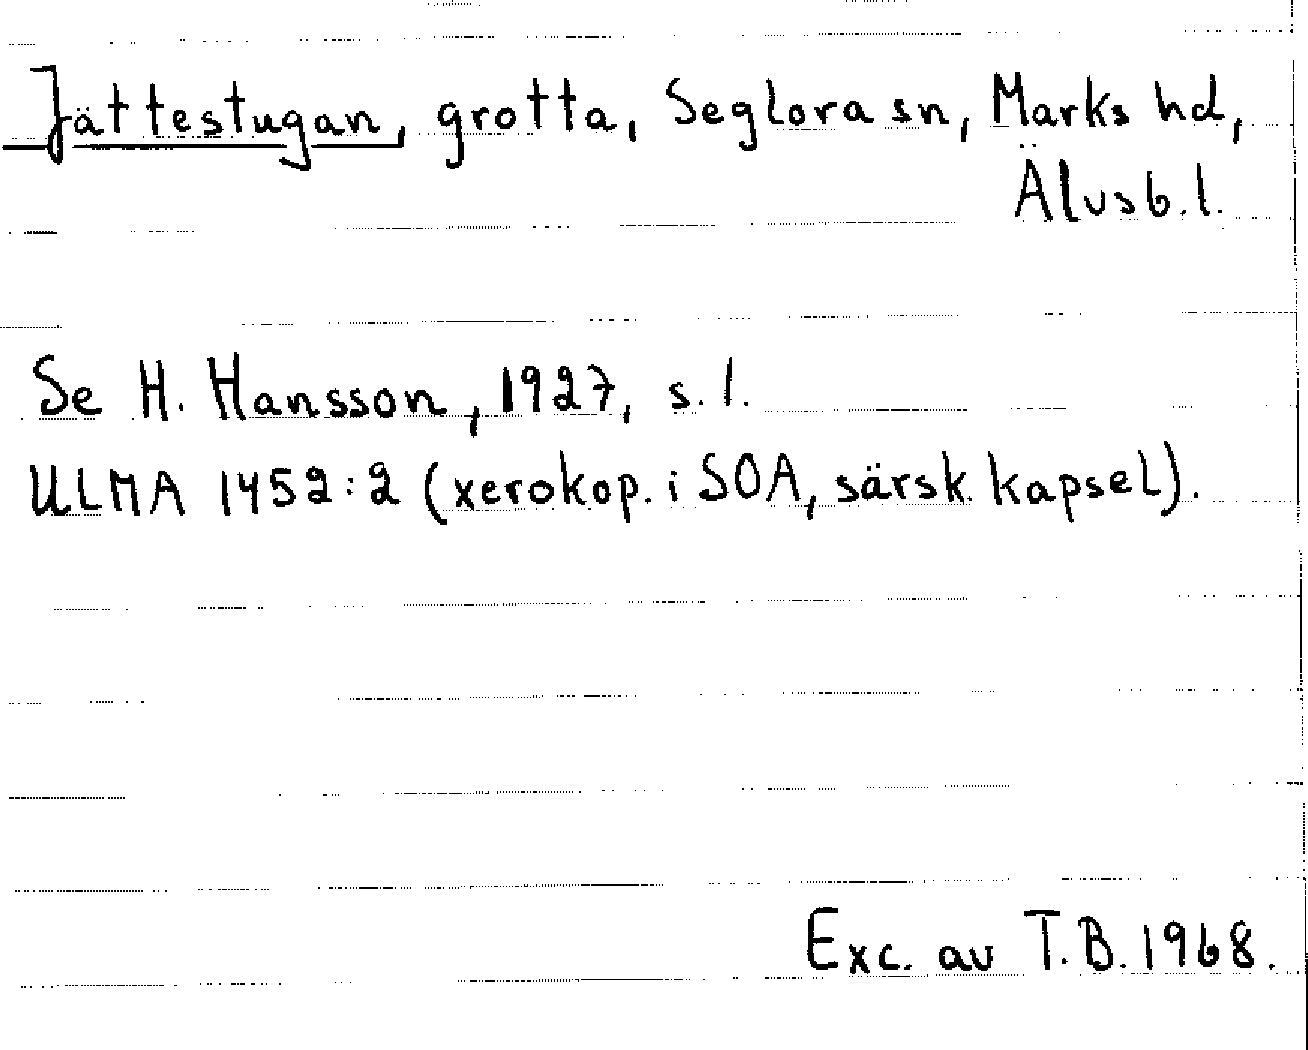 Jättestugan, grotta, Seglora sn, Marks hd,
Älvsb. l.
Se H. Hansson, 1927, s. 1.
ULMA 1452:2 (xerokop. i SOA, särsk. kapsel).
Exc. av T.B. 1968.